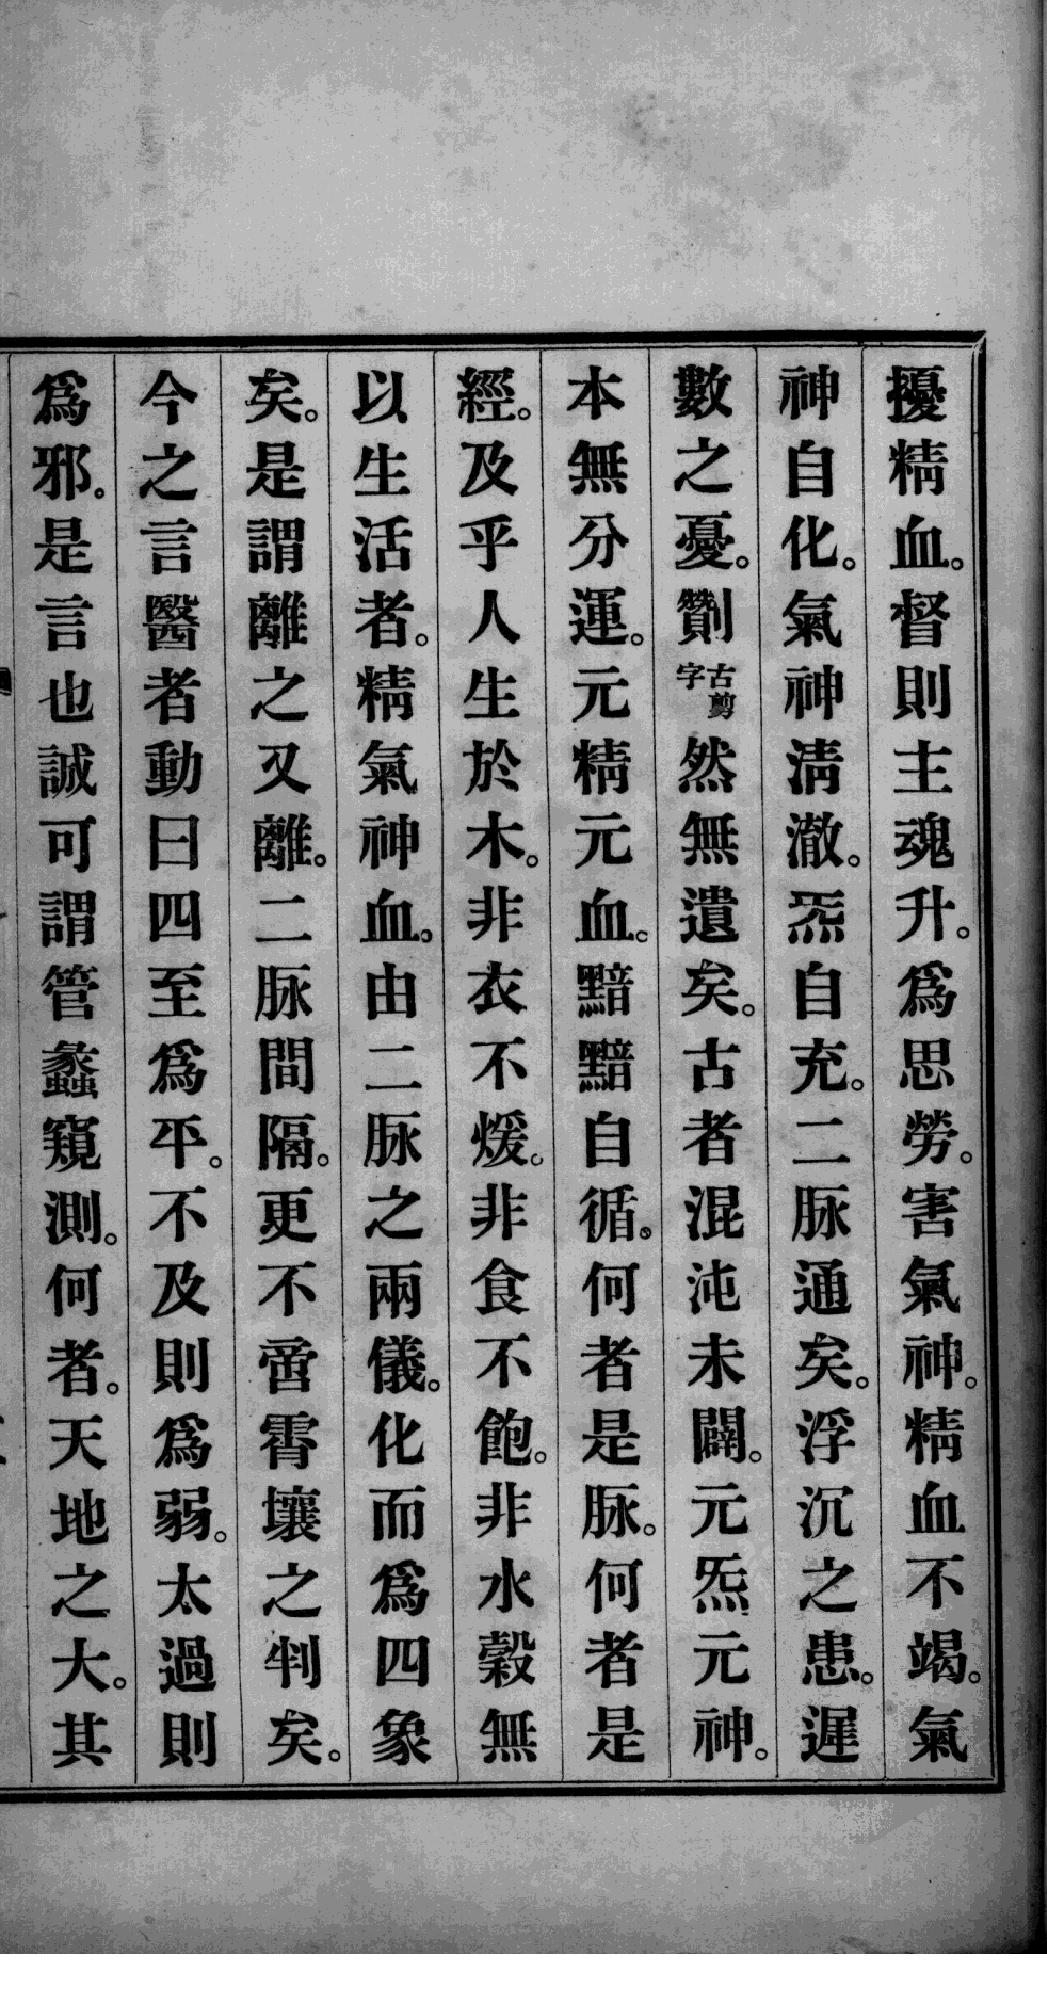 擾精血。督則主魂升。爲思勞。害氣神。精血不竭。氣
神自化。氣神清澈。炁自充。二脉通矣。浮沉之患。遲
數之憂。劗古剪字然無遺矣。古者混沌未闢。元炁元神。
本無分運。元精元血。黯黯自循。何者是脉。何者是
經。及乎人生於木。非衣不煖。非食不飽。非水穀無
以生活者。精氣神血。由二脉之兩儀。化而爲四象
矣。是謂離之又離。二脉間隔。更不啻霄壤之判矣。
今之言醫者動曰四至爲平。不及則爲弱。太過則
爲邪。是言也誠可謂管蠡窺測。何者。天地之大。其